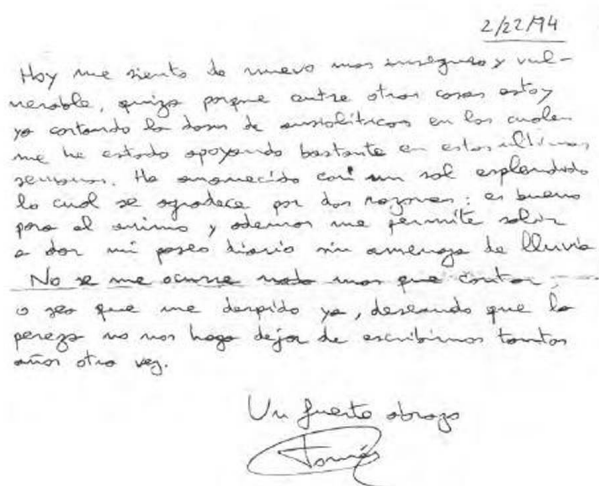 2/22/94
Hoy me siento de nuevo mas inseguro y vul-
nerable, quiza porque entre otras cosas estoy
ya cortando la dosis de ansiolíticos en los cuales
me he estado apoyando bastante en estos ultimas
semanas. Ha amanecido con un sol esplendido
lo cual se agradece por dos razones: es bueno
para el animo y ademas me permite salir
a dar mi paseo diario sin amenaza de lluvia
No se me ocurre nada mas que contar,
o sea que me despido ya, deseando que la
pereza no nos haga dejar de escribirnos tantos
años otra vez.
Un fuerte abrazo
Tomás